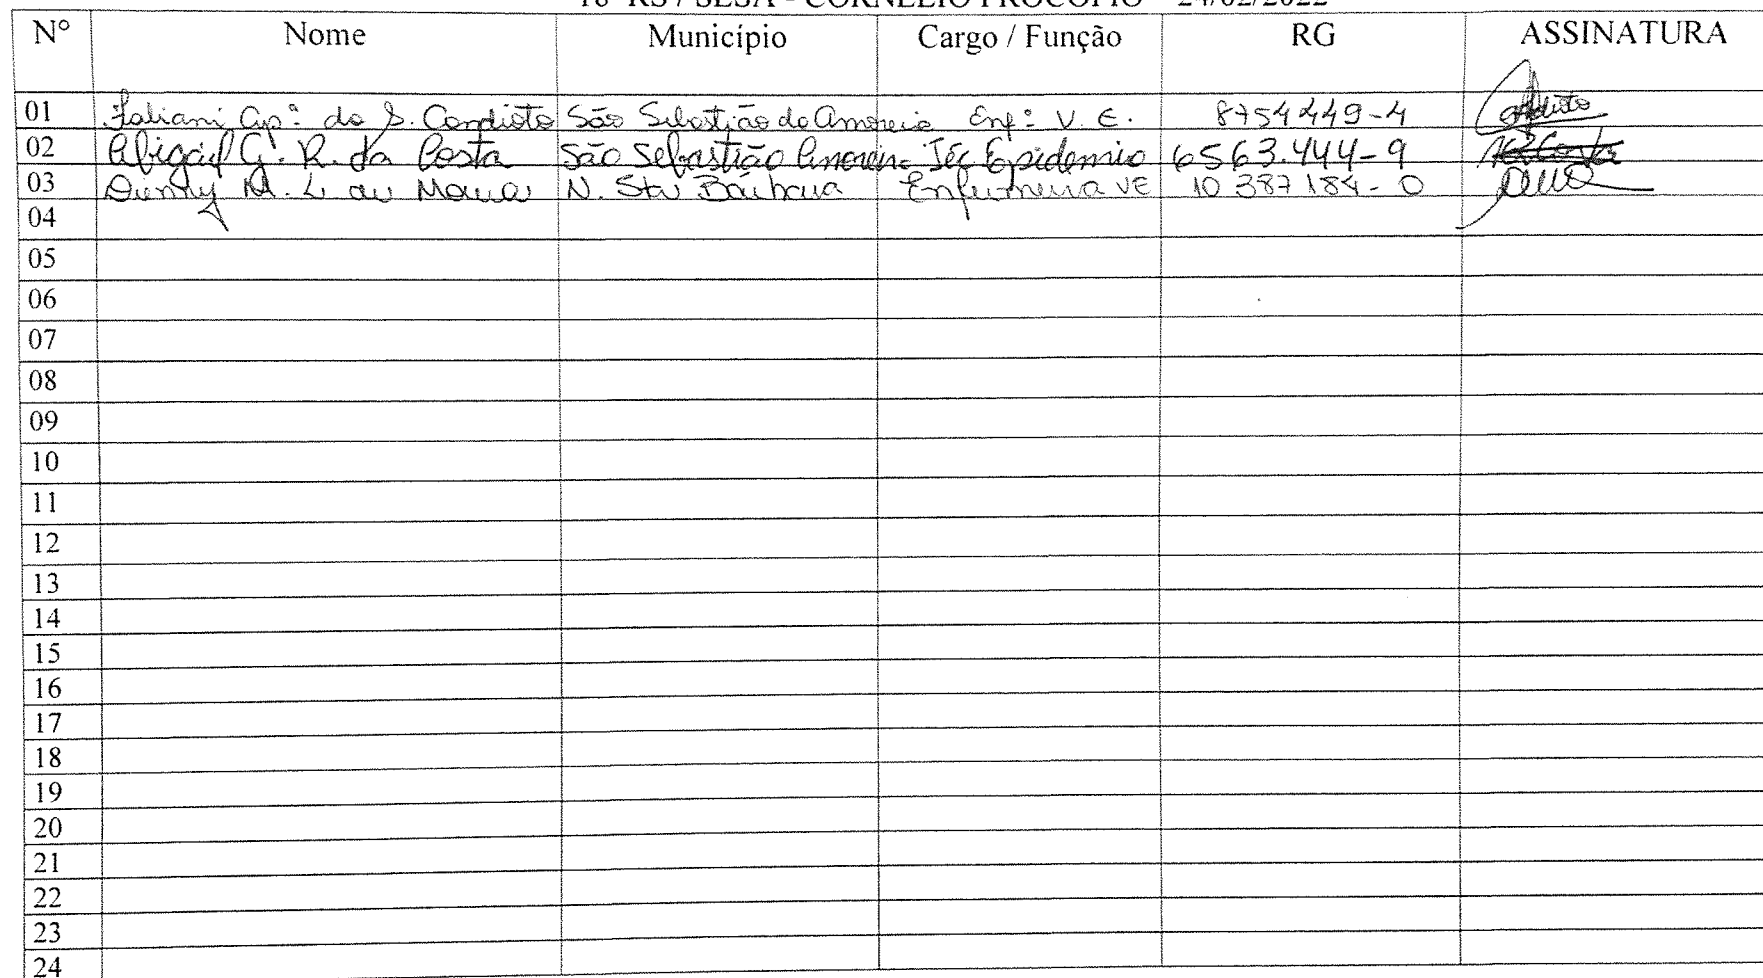 18ª RS / SESA - CORNÉLIO PROCÓPIO - 24/02/2022
Nº Nome Município Cargo / Função RG ASSINATURA
01 Fabiani Apª da S. Candioto São Sebastião da Amoreira Enfª V. E. 8754449-4 Candioto
02 Abigail G. R. da Costa São Sebastião Amoreira Téc Epidemio 6563.444-9 Costa
03 M. L. N. Sta Bárbara Enfermeira VE 10 387 184-0
04
05
06
07
08
09
10
11
12
13
14
15
16
17
18
19
20
21
22
23
24